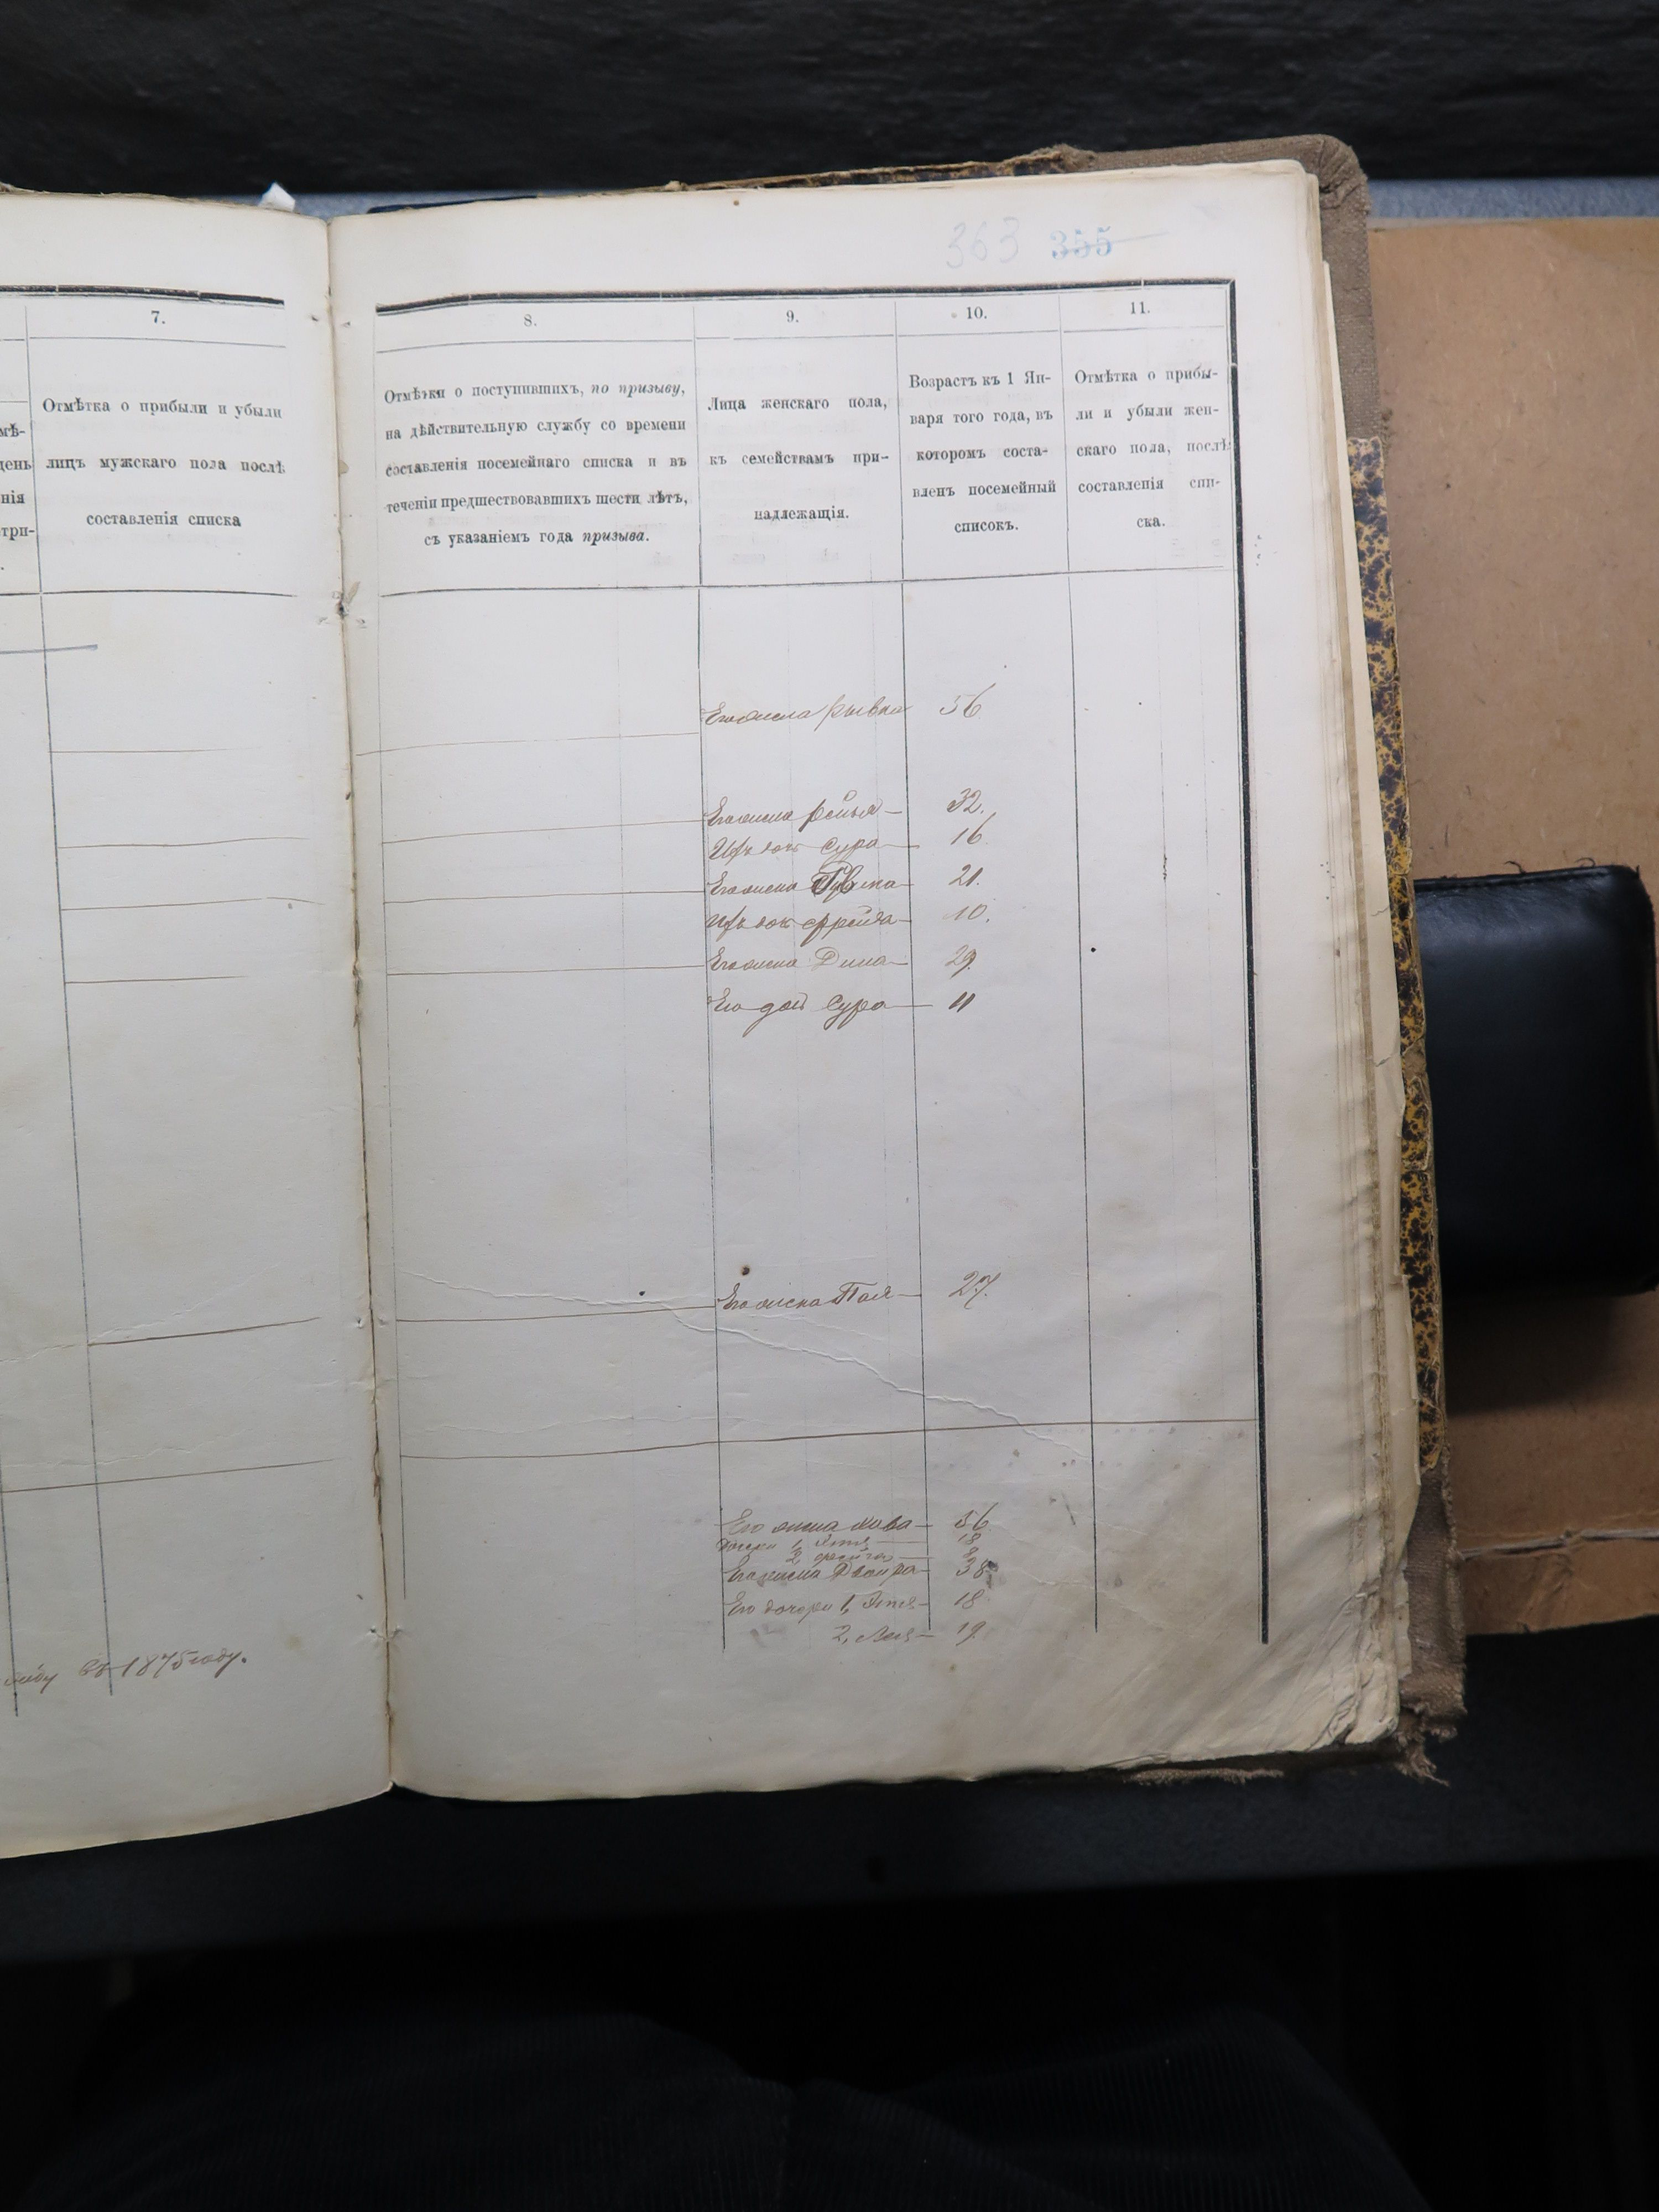 7.
мѣ-
день
нія
три-
Отмѣтка о прибыли и убыли
лицъ мужскаго пола послѣ
составленія списка
въ 1875 году.
363 355
8.
Отмѣтки о поступившихъ, по призыву,
на дѣйствительную службу со времени
составленія посемейнаго списка и въ
теченіи предшествовавшихъ шести лѣтъ,
съ указаніемъ года призыва.
9.
Лица женскаго пола,
къ семействамъ при-
надлежащія.
10.
Возрастъ къ 1 Ян-
варя того года, въ
которомъ соста-
вленъ посемейный
списокъ.
11.
Отмѣтка о прибы-
ли и убыли жен-
скаго пола, послѣ
составленія спи-
ска.
Его жена Рывка 56
Его жена Рейзя 32.
Ихъ дочь Сура 16
Его жена 21.
Ихъ дочь Фрейда 10.
Его жена Дина 29.
Его доч Сура 11
Его жена Пая 27.
Его жена Хава 56
1, 18
2, 9
Его жена Двейра 38
Его дочери 1, 18
2, Лея 19.